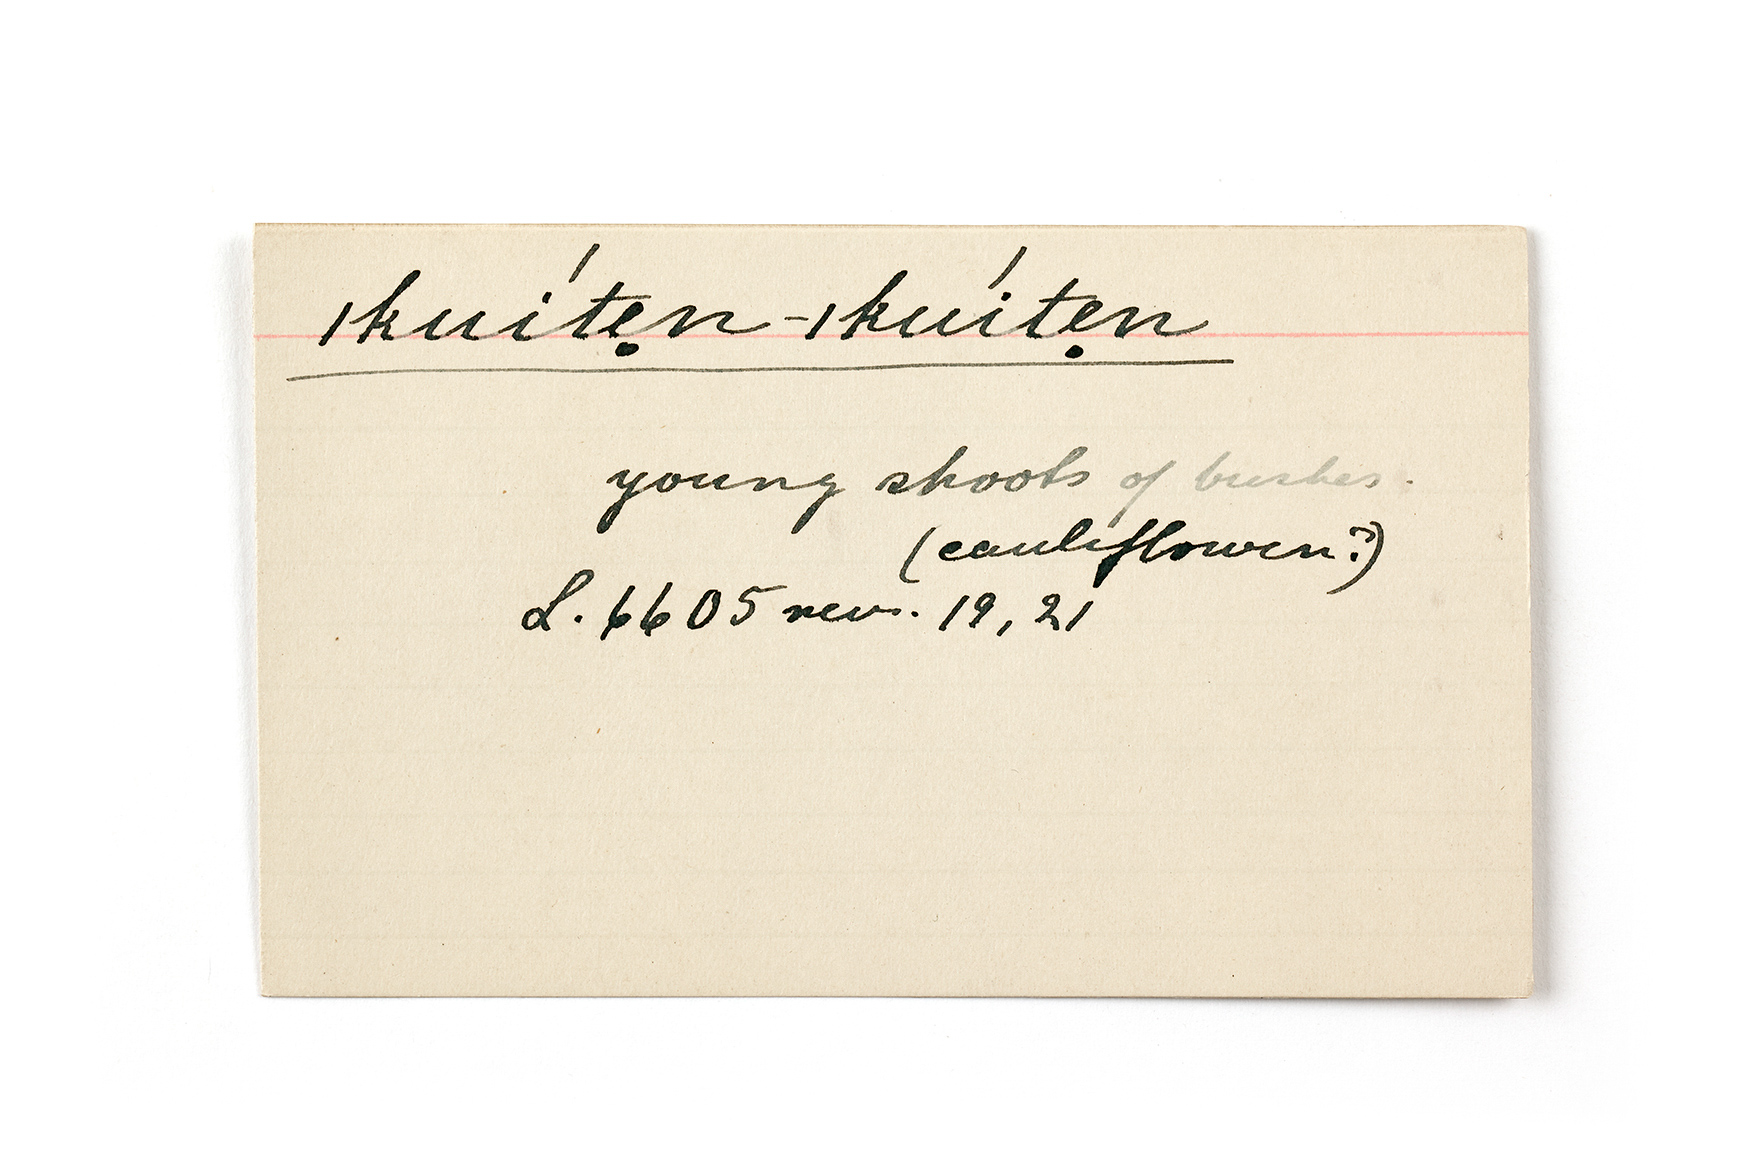 ǀkuíten̩-ǀkuíten̩
young shoots of bushes.
(cauliflower?)
L. 6605 rev. 19, 21